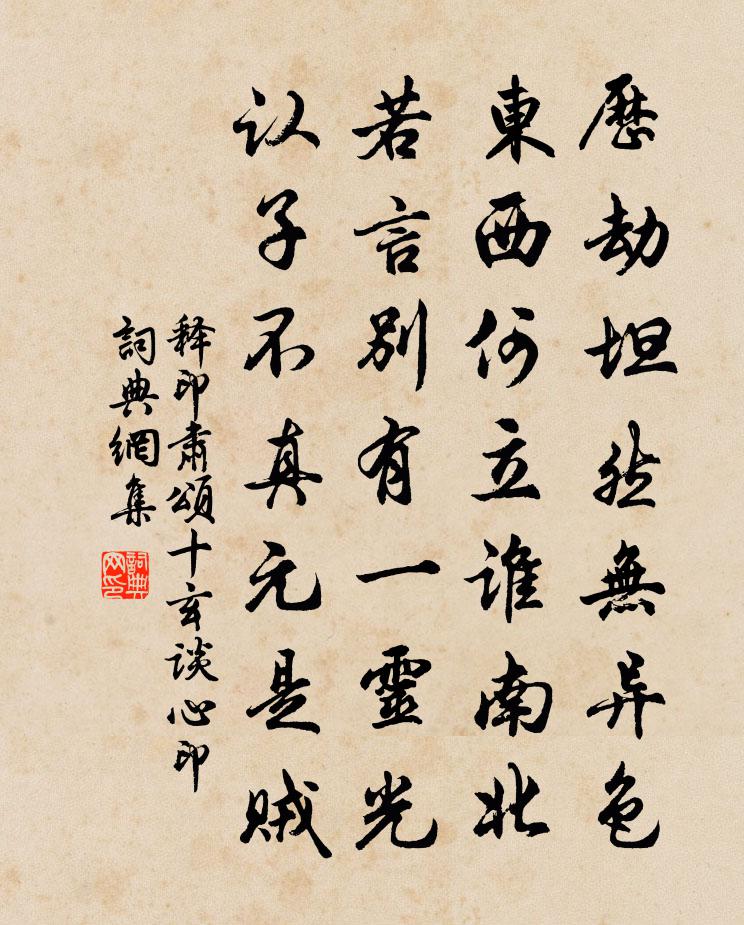 歷劫坦然無异色
東西何立誰南北
若言别有一靈光
认子不真元是贼
释印肅頌十玄谈心印
詞典網集
詞典网印